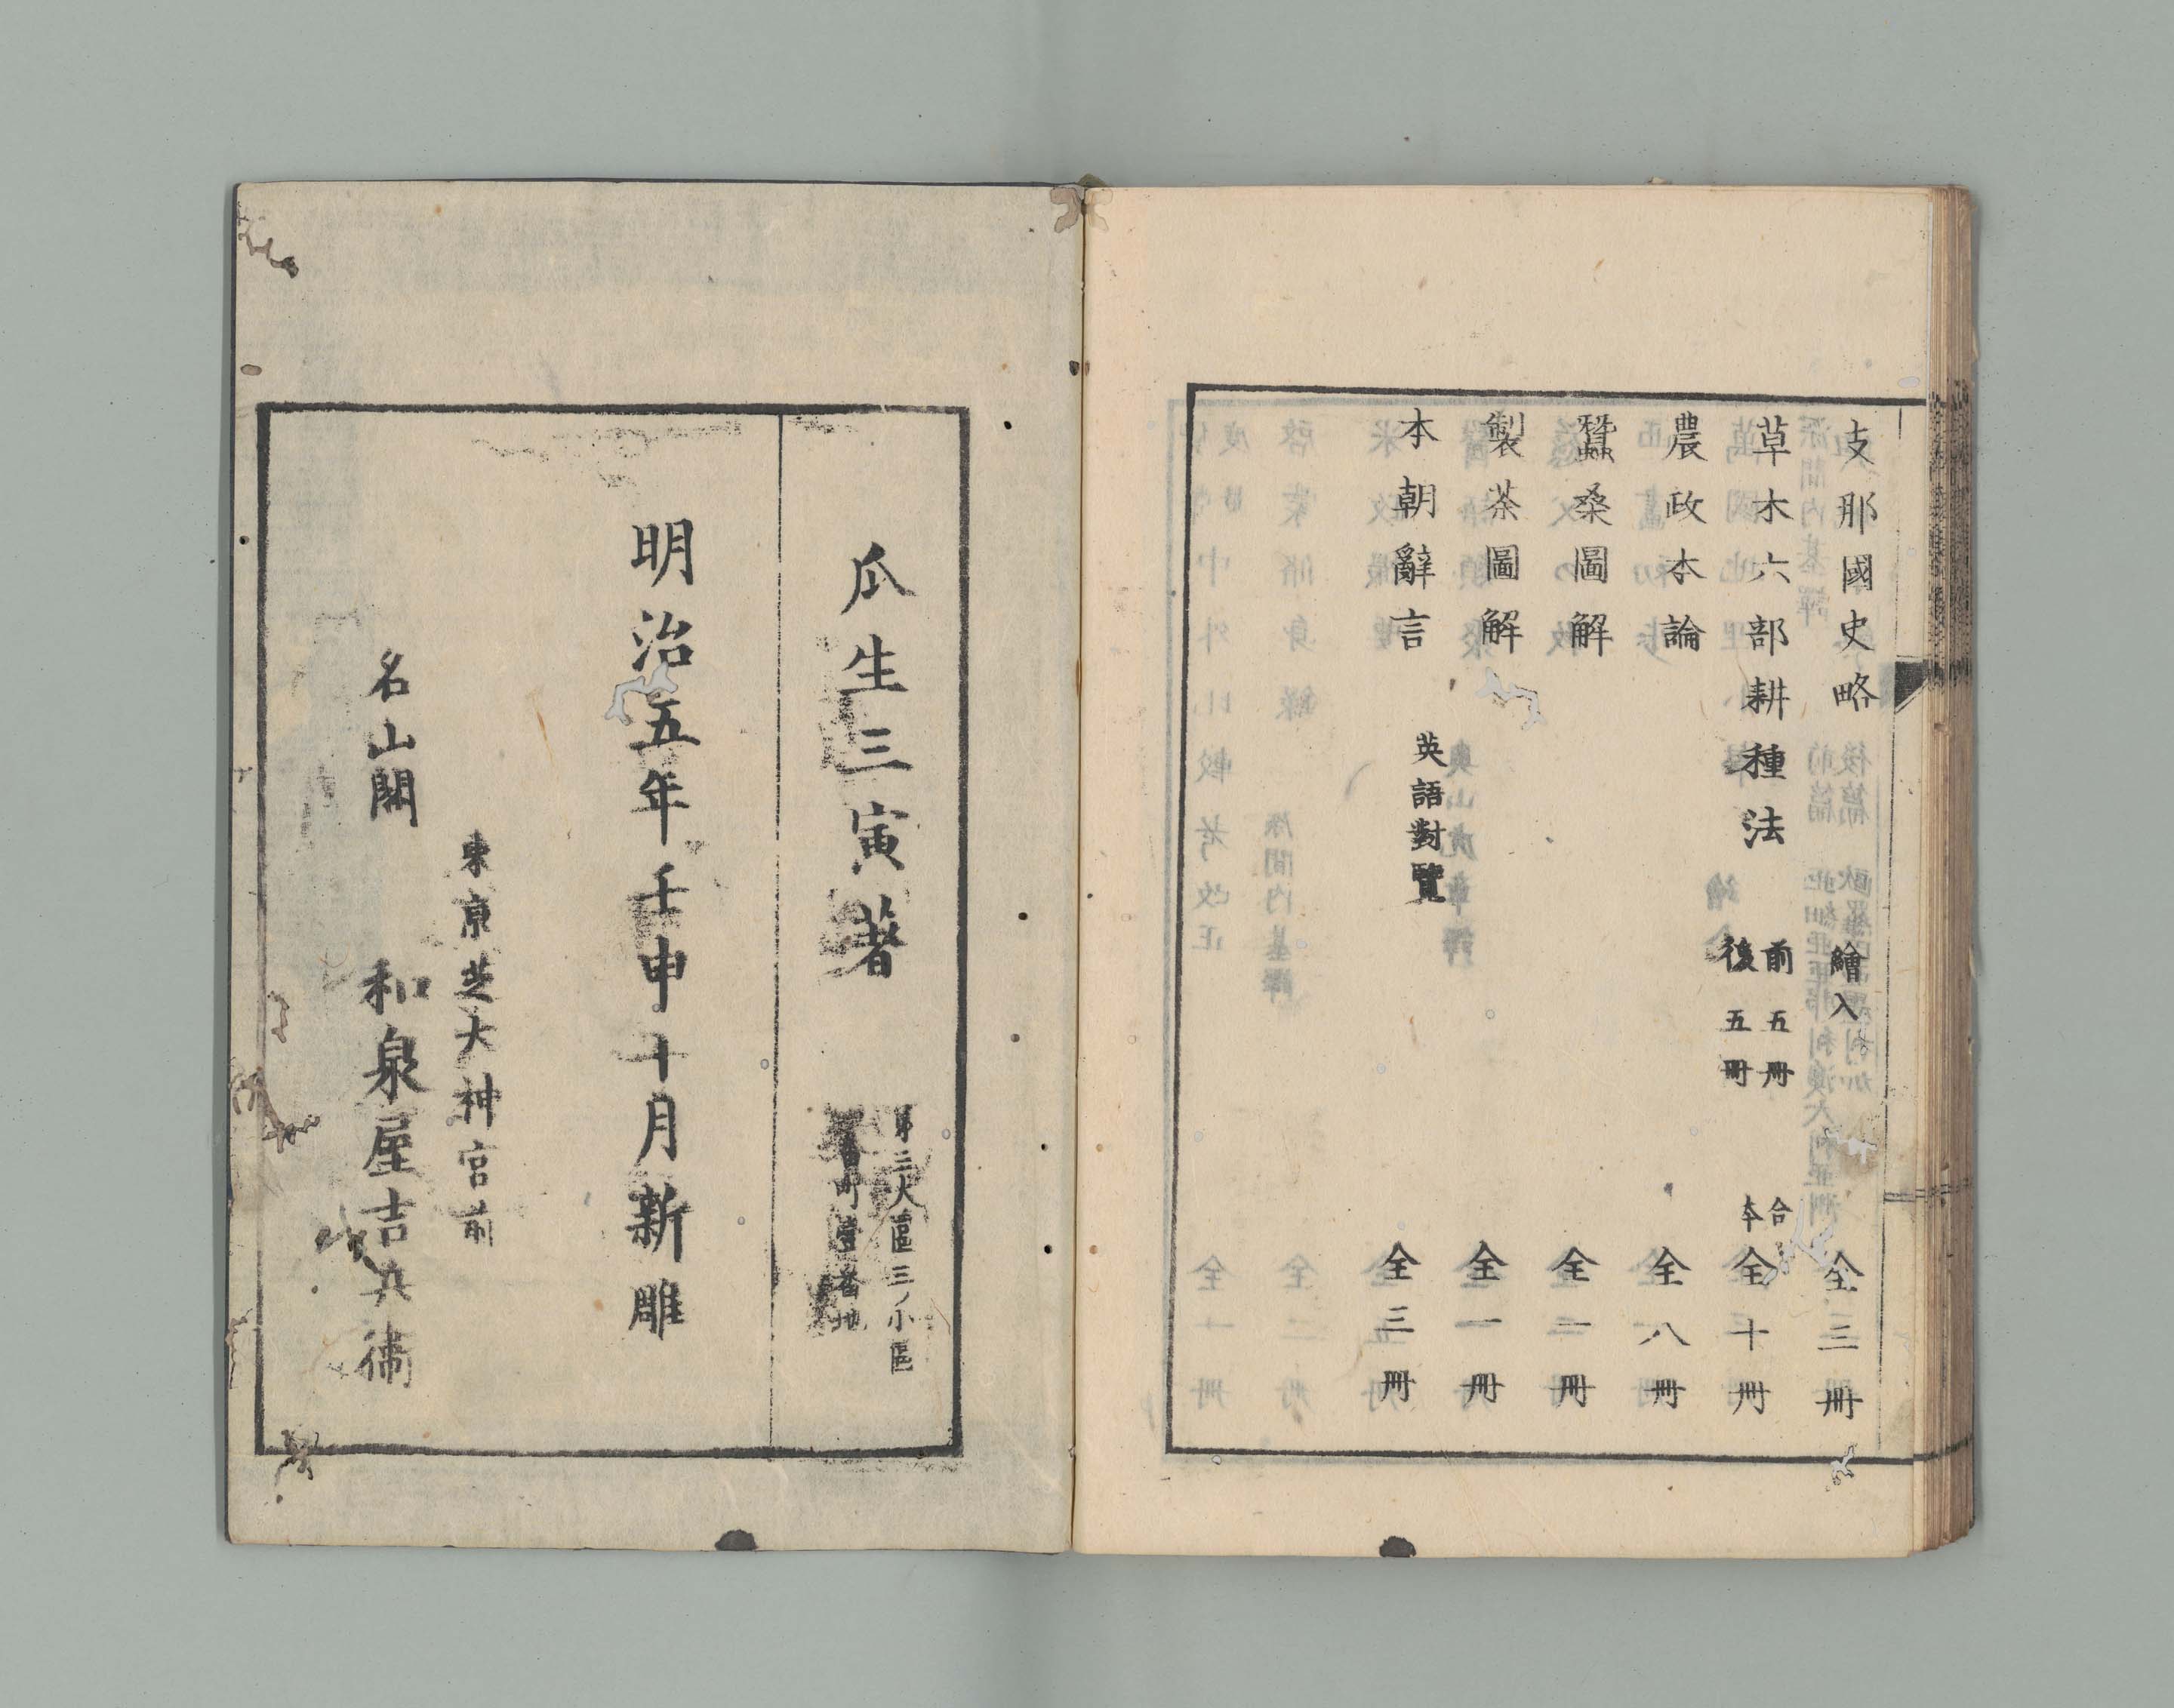 支那國史略　繪入　全三冊
草木六部耕種法　前五冊　後五冊　合本　全十冊
農政本論　全八冊
蠶桑圖解　全一冊
製茶圖解　全一冊
本朝辭言　英語對覽　全三冊
瓜生三寅著
第二大區三ノ小區
町壹番地
明治五年壬申十月新雕
東京芝大神宮前
名山閣　和泉屋吉兵衞